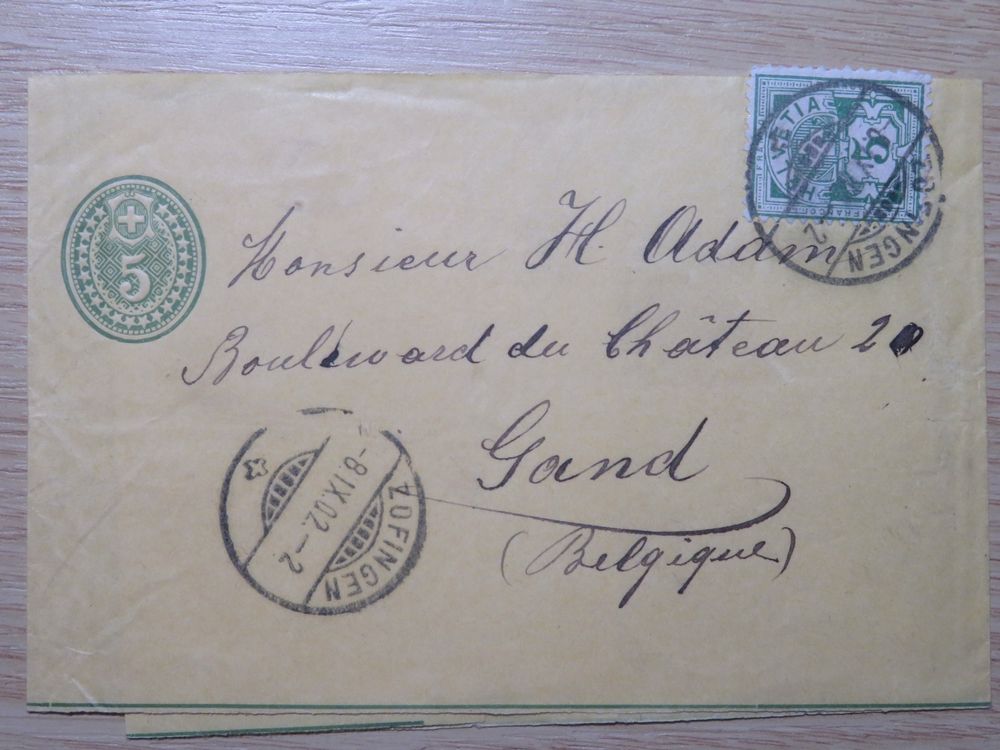 HELVETIA
FRANCO
5
ZOFINGEN
5
Monsieur H. Adam
Boulevard du Château 20
Gand
(Belgique)
-8.IX.02.-2
ZOFINGEN